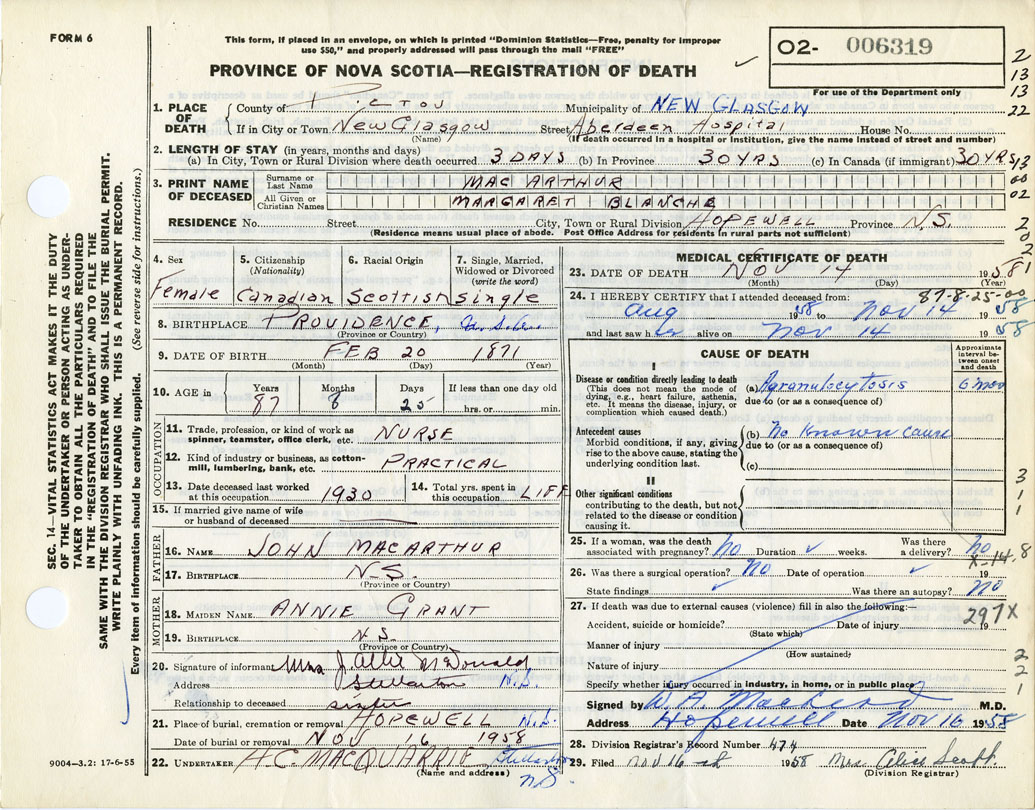 FORM 6
This form, if placed in an envelope, on which is printed "Dominion Statistics—Free, penalty for improper
use $50," and properly addressed will pass through the mail "FREE"
PROVINCE OF NOVA SCOTIA—REGISTRATION OF DEATH
O2- 006319
For use of the Department only
2
13
13
22
1. PLACE OF DEATH { County of PICTOU Municipality of NEW GLASGOW
If in City or Town New Glasgow Street Aberdeen Hospital House No.
(Name) (If death occurred in a hospital or institution, give the name instead of street and number)
2. LENGTH OF STAY (in years, months and days)
(a) In City, Town or Rural Division where death occurred 3 DAYS (b) In Province 30 YRS (c) In Canada (if immigrant) 30 YRS
3. PRINT NAME OF DECEASED
Surname or Last Name MAC ARTHUR
All Given or Christian Names MARGARET BLANCHE
RESIDENCE No. Street City, Town or Rural Division HOPEWELL Province N.S.
(Residence means usual place of abode. Post Office Address for residents in rural parts not sufficient)
13
00
02
2
0
2
81
SEC. 14—VITAL STATISTICS ACT MAKES IT THE DUTY
OF THE UNDERTAKER OR PERSON ACTING AS UNDER-
TAKER TO OBTAIN ALL THE PARTICULARS REQUIRED
IN THE "REGISTRATION OF DEATH" AND TO FILE THE
SAME WITH THE DIVISION REGISTRAR WHO SHALL ISSUE THE BURIAL PERMIT.
WRITE PLAINLY WITH UNFADING INK. THIS IS A PERMANENT RECORD.
Every item of information should be carefully supplied. (See reverse side for instructions.)
4. Sex
Female
5. Citizenship
(Nationality)
Canadian
6. Racial Origin
Scottish
7. Single, Married,
Widowed or Divorced
(write the word)
Single
8. BIRTHPLACE PROVIDENCE, U.S.A.
(Province or Country)
9. DATE OF BIRTH FEB 20 1871
(Month) (Day) (Year)
10. AGE in { Years 87 Months 8 Days 25 If less than one day old
hrs. or min.
OCCUPATION
11. Trade, profession, or kind of work as
spinner, teamster, office clerk, etc. NURSE
12. Kind of industry or business, as cotton-
mill, lumbering, bank, etc. PRACTICAL
13. Date deceased last worked
at this occupation 1930
14. Total yrs. spent in
this occupation LIFE
15. If married give name of wife
or husband of deceased
FATHER
16. NAME JOHN MACARTHUR
17. BIRTHPLACE N.S.
(Province or Country)
MOTHER
18. MAIDEN NAME ANNIE GRANT
19. BIRTHPLACE N.S.
(Province or Country)
20. Signature of informant Mrs J. Allie McDonald
Address Stellarton N.S.
Relationship to deceased sister
21. Place of burial, cremation or removal HOPEWELL N.S.
Date of burial or removal NOV 16 1958
22. UNDERTAKER H.C. MACQUARRIE Stellarton
(Name and address) N.S.
9004—3.2: 17-6-55
MEDICAL CERTIFICATE OF DEATH
23. DATE OF DEATH NOV 14 1958
(Month) (Day) (Year)
87-8-25-00
24. I HEREBY CERTIFY that I attended deceased from:
Aug 1958 to Nov 14 1958
and last saw her alive on Nov 14 1958
CAUSE OF DEATH
Approximate
interval be-
tween onset
and death
I
Disease or condition directly leading to death
(This does not mean the mode of
dying, e.g., heart failure, asthenia,
etc. It means the disease, injury, or
complication which caused death.)
(a) Agranulocytosis 6 mos
due to (or as a consequence of)
Antecedent causes
Morbid conditions, if any, giving
rise to the above cause, stating the
underlying condition last.
(b) No known cause
due to (or as a consequence of)
(c)
II
Other significant conditions
contributing to the death, but not
related to the disease or condition
causing it.
3
1
1
25. If a woman, was the death
associated with pregnancy? No Duration weeks. Was there
a delivery? no
X-14-8
26. Was there a surgical operation? No Date of operation 19
State findings Was there an autopsy? NO
27. If death was due to external causes (violence) fill in also the following:—
297X
Accident, suicide or homicide? Date of injury 19
(State which)
Manner of injury
(How sustained)
Nature of injury
Specify whether injury occurred in industry, in home, or in public place
2
2
1
Signed by W. A. MacLeod M.D.
Address Hopewell Date Nov 16 1958
28. Division Registrar's Record Number 474
29. Filed Nov 16th 1958 Mrs. Alice Scott
(Division Registrar)